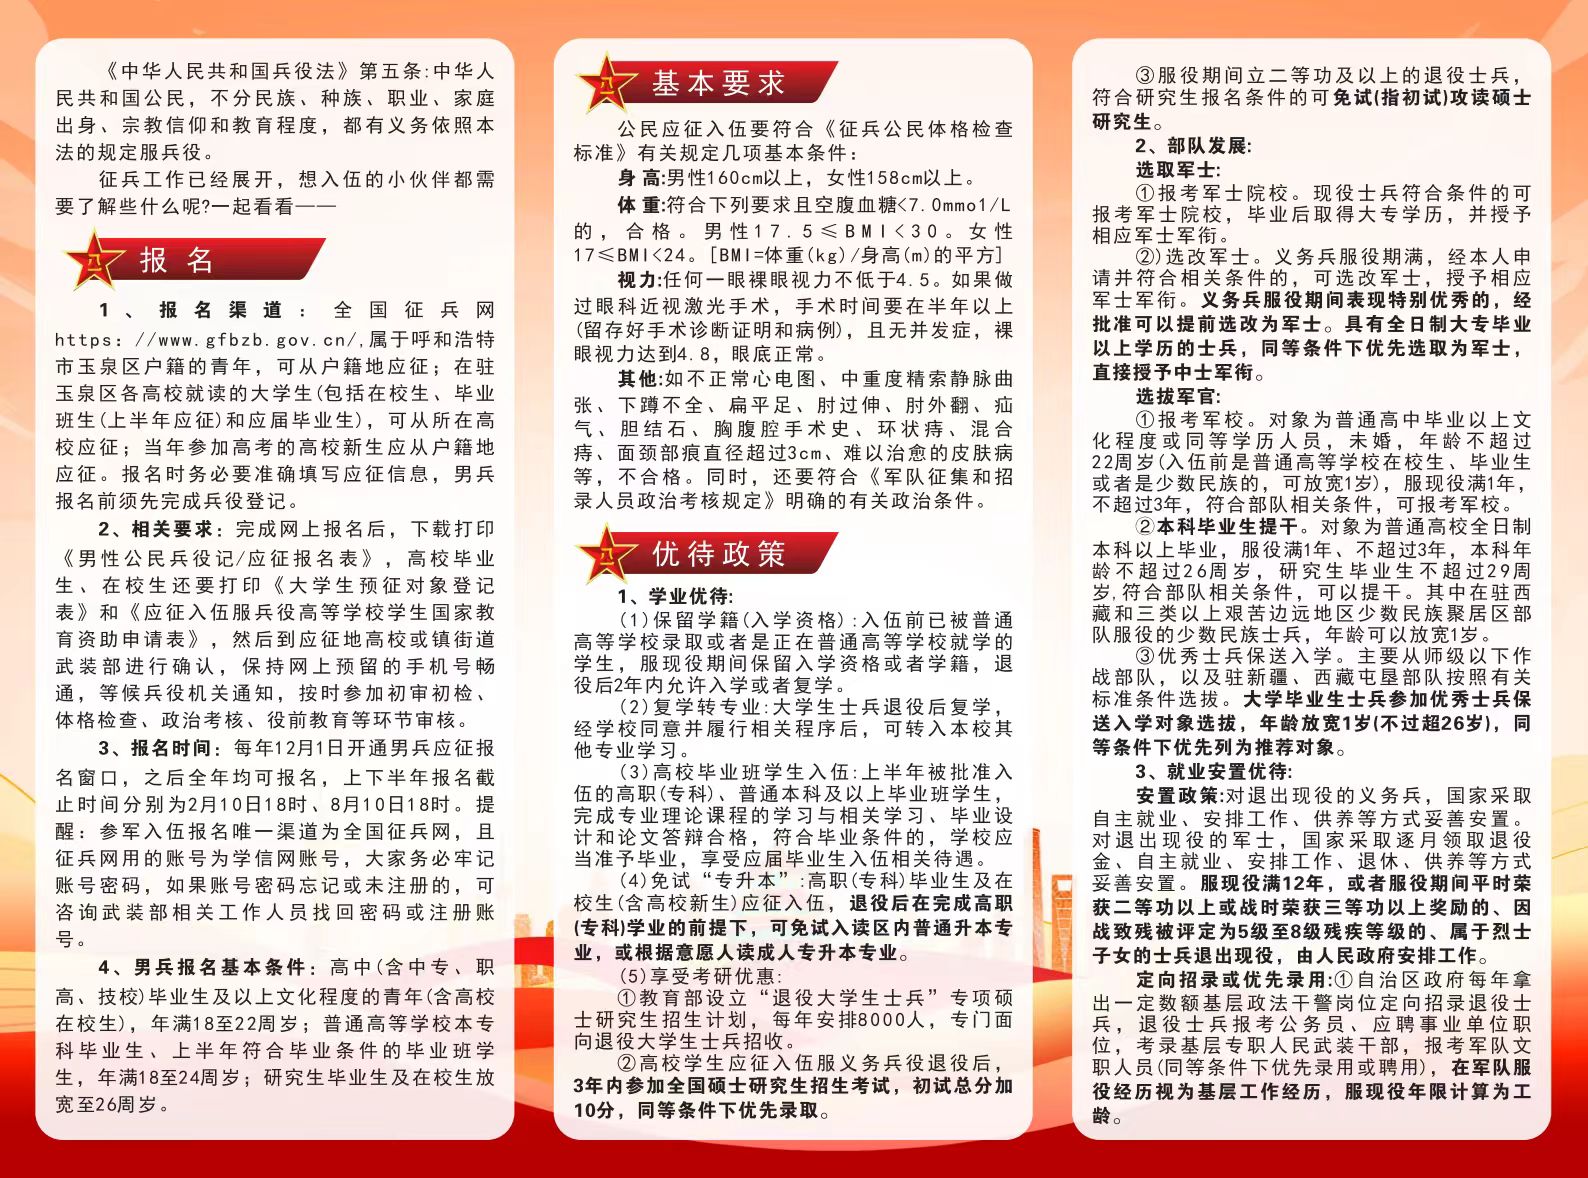 《中华人民共和国兵役法》第五条:中华人
民共和国公民，不分民族、种族、职业、家庭
出身、宗教信仰和教育程度，都有义务依照本
法的规定服兵役。
征兵工作已经展开，想入伍的小伙伴都需
要了解些什么呢?一起看看——
报名
1、报名渠道：全国征兵网
https：//www.gfbzb.gov.cn/,属于呼和浩特
市玉泉区户籍的青年，可从户籍地应征；在驻
玉泉区各高校就读的大学生(包括在校生、毕业
班生(上半年应征)和应届毕业生)，可从所在高
校应征；当年参加高考的高校新生应从户籍地
应征。报名时务必要准确填写应征信息，男兵
报名前须先完成兵役登记。
2、相关要求：完成网上报名后，下载打印
《男性公民兵役记/应征报名表》，高校毕业
生、在校生还要打印《大学生预征对象登记
表》和《应征入伍服兵役高等学校学生国家教
育资助申请表》，然后到应征地高校或镇街道
武装部进行确认，保持网上预留的手机号畅
通，等候兵役机关通知，按时参加初审初检、
体格检查、政治考核、役前教育等环节审核。
3、报名时间：每年12月1日开通男兵应征报
名窗口，之后全年均可报名，上下半年报名截
止时间分别为2月10日18时、8月10日18时。提
醒：参军入伍报名唯一渠道为全国征兵网，且
征兵网用的账号为学信网账号，大家务必牢记
账号密码，如果账号密码忘记或未注册的，可
咨询武装部相关工作人员找回密码或注册账
号。
4、男兵报名基本条件：高中(含中专、职
高、技校)毕业生及以上文化程度的青年(含高校
在校生)，年满18至22周岁；普通高等学校本专
科毕业生、上半年符合毕业条件的毕业班学
生，年满18至24周岁；研究生毕业生及在校生放
宽至26周岁。
基本要求
公民应征入伍要符合《征兵公民体格检查
标准》有关规定几项基本条件：
身高:男性160cm以上，女性158cm以上。
体重:符合下列要求且空腹血糖<7.0mmo1/L
的，合格。男性17.5≤BMI<30。女性
17≤BMI<24。[BMI=体重(kg)/身高(m)的平方]
视力:任何一眼裸眼视力不低于4.5。如果做
过眼科近视激光手术，手术时间要在半年以上
(留存好手术诊断证明和病例)，且无并发症，裸
眼视力达到4.8，眼底正常。
其他:如不正常心电图、中重度精索静脉曲
张、下蹲不全、扁平足、肘过伸、肘外翻、疝
气、胆结石、胸腹腔手术史、环状痔、混合
痔、面颈部痕直径超过3cm、难以治愈的皮肤病
等，不合格。同时，还要符合《军队征集和招
录人员政治考核规定》明确的有关政治条件。
优待政策
1、学业优待:
(1)保留学籍(入学资格):入伍前已被普通
高等学校录取或者是正在普通高等学校就学的
学生，服现役期间保留入学资格或者学籍，退
役后2年内允许入学或者复学。
(2)复学转专业:大学生士兵退役后复学，
经学校同意并履行相关程序后，可转入本校其
他专业学习。
(3)高校毕业班学生入伍:上半年被批准入
伍的高职(专科)、普通本科及以上毕业班学生，
完成专业理论课程的学习与相关学习、毕业设
计和论文答辩合格，符合毕业条件的，学校应
当准予毕业，享受应届毕业生入伍相关待遇。
(4)免试“专升本”:高职(专科)毕业生及在
校生(含高校新生)应征入伍，退役后在完成高职
(专科)学业的前提下，可免试入读区内普通升本专
业，或根据意愿人读成人专升本专业。
(5)享受考研优惠:
①教育部设立“退役大学生士兵”专项硕
士研究生招生计划，每年安排8000人，专门面
向退役大学生士兵招收。
②高校学生应征入伍服义务兵役退役后，
3年内参加全国硕士研究生招生考试，初试总分加
10分，同等条件下优先录取。
③服役期间立二等功及以上的退役士兵，
符合研究生报名条件的可免试(指初试)攻读硕士
研究生。
2、部队发展:
选取军士:
①报考军士院校。现役士兵符合条件的可
报考军士院校，毕业后取得大专学历，并授予
相应军士军衔。
②)选改军士。义务兵服役期满，经本人申
请并符合相关条件的，可选改军士，授予相应
军士军衔。义务兵服役期间表现特别优秀的，经
批准可以提前选改为军士。具有全日制大专毕业
以上学历的士兵，同等条件下优先选取为军士，
直接授予中士军衔。
选拔军官:
①报考军校。对象为普通高中毕业以上文
化程度或同等学历人员，未婚，年龄不超过
22周岁(入伍前是普通高等学校在校生、毕业生
或者是少数民族的，可放宽1岁)，服现役满1年，
不超过3年，符合部队相关条件，可报考军校。
②本科毕业生提干。对象为普通高校全日制
本科以上毕业，服役满1年、不超过3年，本科年
龄不超过26周岁，研究生毕业生不超过29周
岁,符合部队相关条件，可以提干。其中在驻西
藏和三类以上艰苦边远地区少数民族聚居区部
队服役的少数民族士兵，年龄可以放宽1岁。
③优秀士兵保送入学。主要从师级以下作
战部队，以及驻新疆、西藏屯垦部队按照有关
标准条件选拔。大学毕业生士兵参加优秀士兵保
送入学对象选拔，年龄放宽1岁(不过超26岁)，同
等条件下优先列为推荐对象。
3、就业安置优待:
安置政策:对退出现役的义务兵，国家采取
自主就业、安排工作、供养等方式妥善安置。
对退出现役的军士，国家采取逐月领取退役
金、自主就业、安排工作、退休、供养等方式
妥善安置。服现役满12年，或者服役期间平时荣
获二等功以上或战时荣获三等功以上奖励的、因
战致残被评定为5级至8级残疾等级的、属于烈士
子女的士兵退出现役，由人民政府安排工作。
定向招录或优先录用:①自治区政府每年拿
出一定数额基层政法干警岗位定向招录退役士
兵，退役士兵报考公务员、应聘事业单位职
位，考录基层专职人民武装干部，报考军队文
职人员(同等条件下优先录用或聘用)，在军队服
役经历视为基层工作经历，服现役年限计算为工
龄。